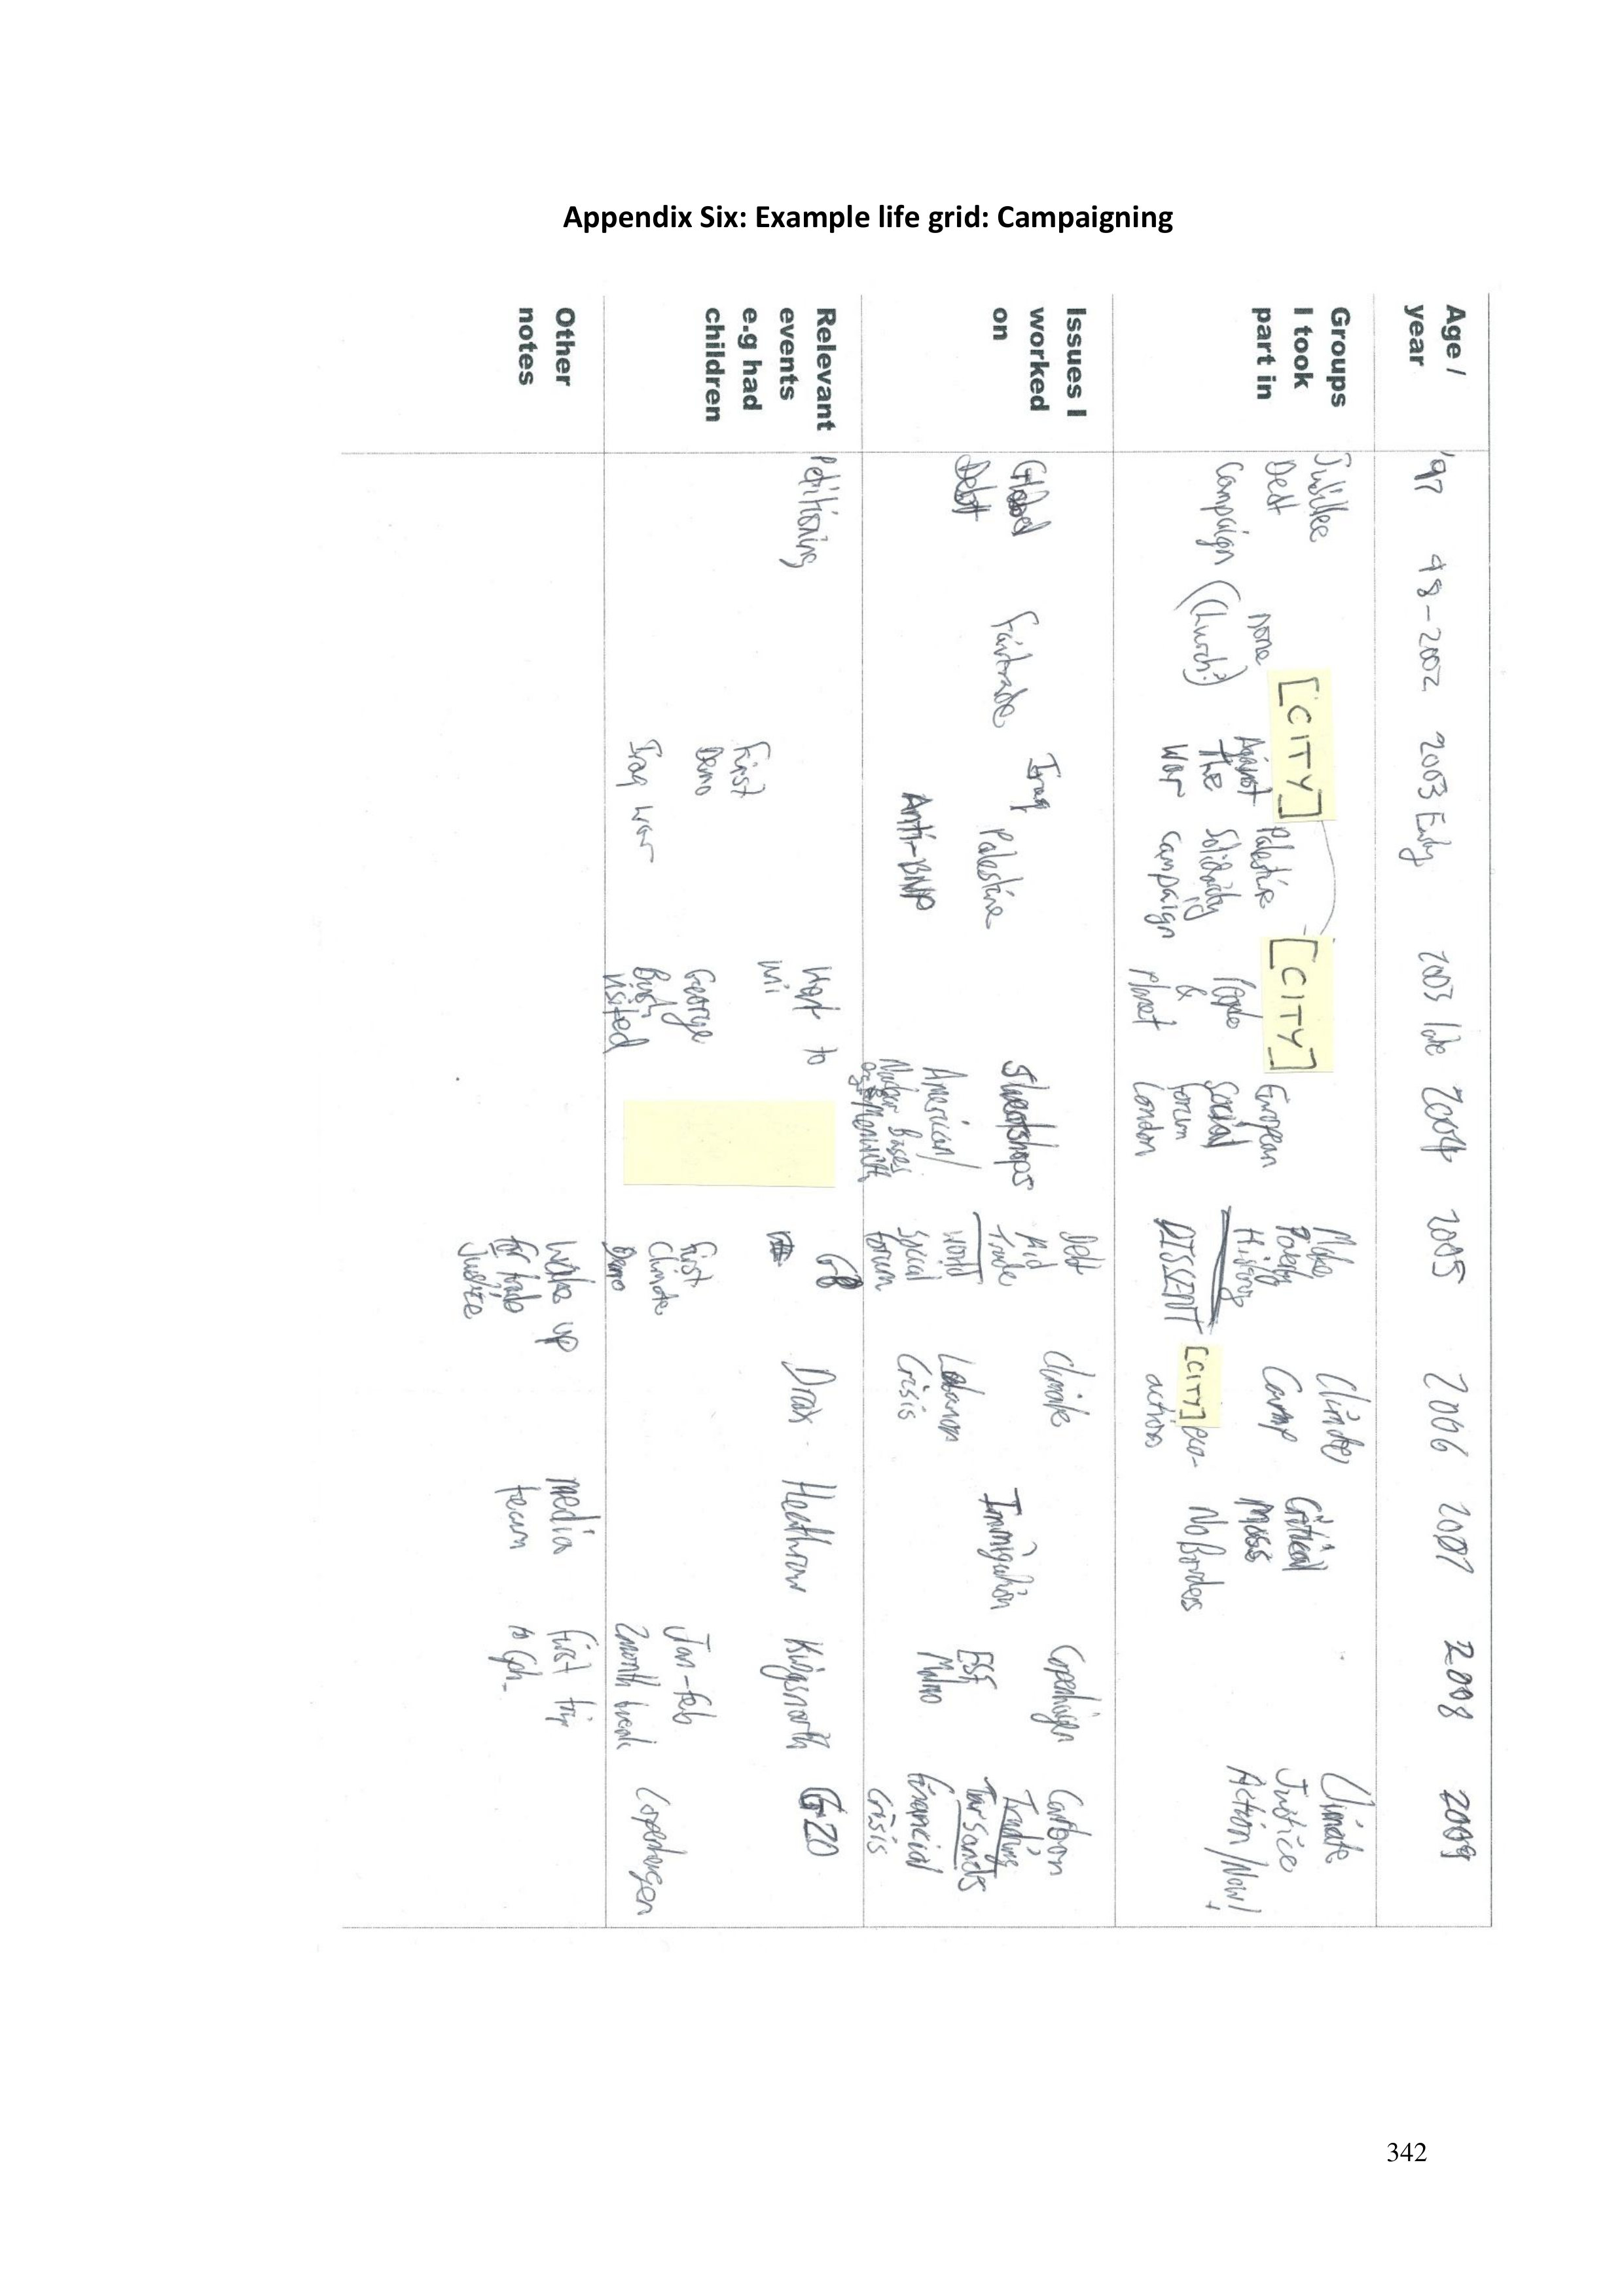 Appendix Six: Example life grid: Campaigning
Age /
year
'97
98-2002
2003 Early
2003 late
2004
2005
2006
2007
2008
2009
Groups
I took
part in
Jubilee
Debt
Campaign
none
(Church?)
[CITY]
Against
The
War
Palestine
Solidarity
Campaign
[CITY]
People
&
Planet
European
Social
Forum
London
Make
Poverty
History
DISSENT
Climate
Camp
[CITY] eco-
action
Critical
Mass
No Borders
Climate
Justice
Action/Now!
Issues I
worked
on
Global
Debt
Fairtrade
Iraq
Palestine
Anti-BNP
Sweatshops
American/
Bases
Menwith
Debt
Aid
Trade
World
Social
Forum
Climate
Lebanon
Crisis
Immigration
Copenhagen
ESF
Malmo
Carbon
Trading
Tar Sands
Financial
Crisis
Relevant
events
e.g had
children
Petitioning
First
Demo
Iraq war
Went to
Uni
George
Bush
visited
G8
First
Climate
Demo
Drax
Heathrow
Kingsnorth
Jan-Feb
2month break
G20
Copenhagen
Other
notes
Wake up
for trade
Justice
media
team
First trip
to Cph-
342